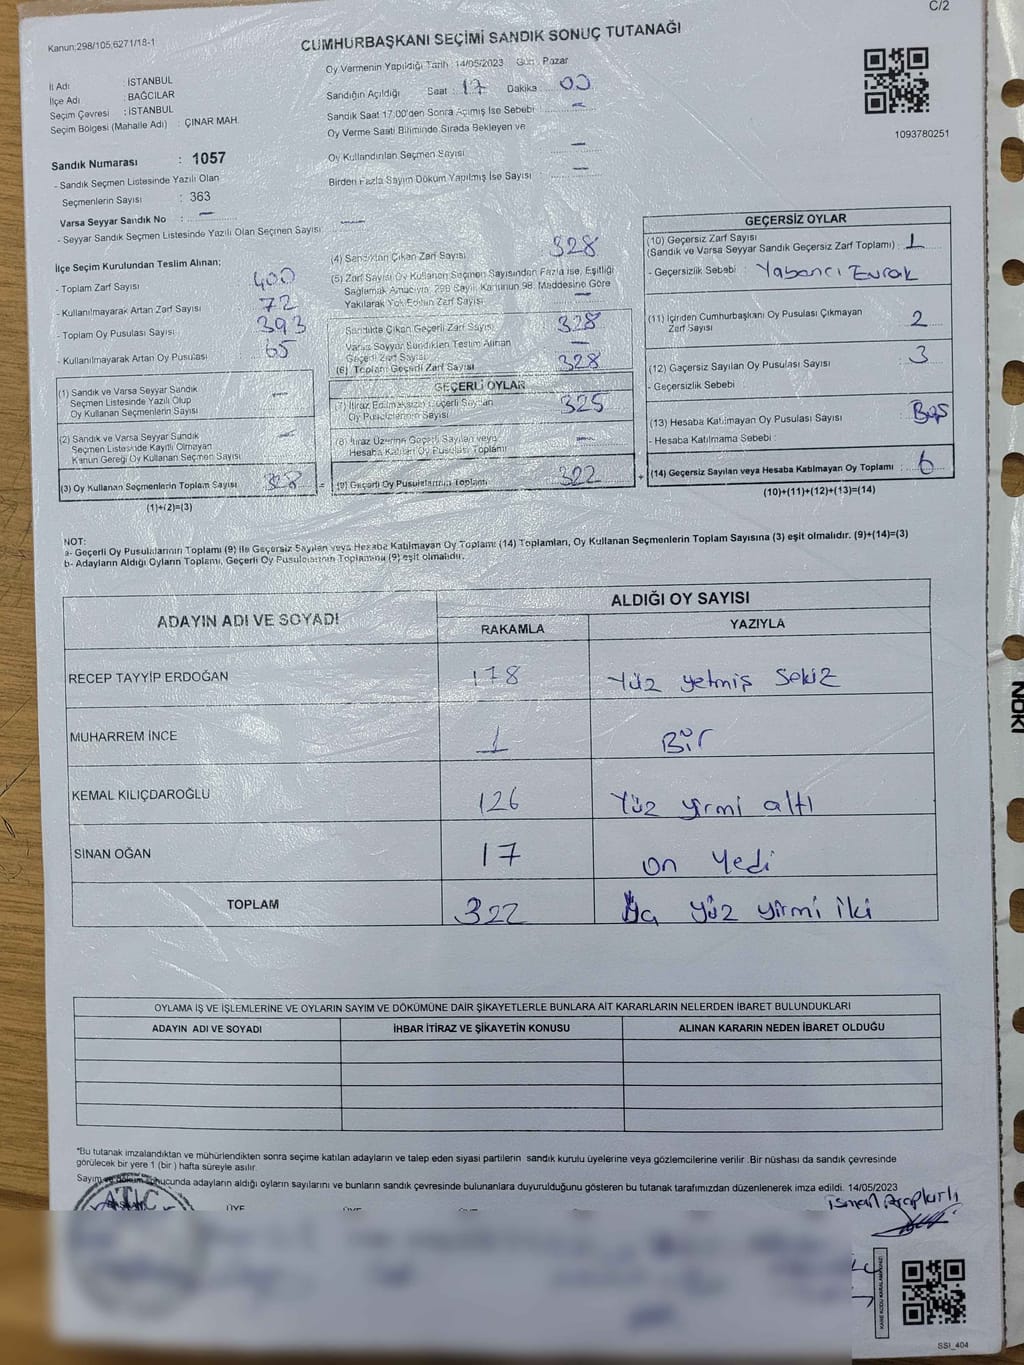 C/2
Kanun:298/105,6271/18-1
CUMHURBAŞKANI SEÇİMİ SANDIK SONUÇ TUTANAĞI
Oy Vermenin Yapıldığı Tarih : 14/05/2023 Gün : Pazar
İl Adı : İSTANBUL
İlçe Adı : BAĞCILAR
Seçim Çevresi : İSTANBUL
Seçim Bölgesi (Mahalle Adı) : ÇINAR MAH.
Sandığın Açıldığı Saat : 17 Dakika : 00
Sandık Saat 17.00'den Sonra Açılmış İse Sebebi : —
Oy Verme Saati Bitiminde Sırada Bekleyen ve
Oy Kullandırılan Seçmen Sayısı : —
Birden Fazla Sayım Döküm Yapılmış İse Sayısı : —
1093780251
Sandık Numarası : 1057
- Sandık Seçmen Listesinde Yazılı Olan
Seçmenlerin Sayısı : 363
Varsa Seyyar Sandık No : —
- Seyyar Sandık Seçmen Listesinde Yazılı Olan Seçmen Sayısı : —
İlçe Seçim Kurulundan Teslim Alınan;
- Toplam Zarf Sayısı : 400
- Kullanılmayarak Artan Zarf Sayısı : 72
- Toplam Oy Pusulası Sayısı : 393
- Kullanılmayarak Artan Oy Pusulası : 65
(1) Sandık ve Varsa Seyyar Sandık
Seçmen Listesinde Yazılı Olup
Oy Kullanan Seçmenlerin Sayısı —
(2) Sandık ve Varsa Seyyar Sandık
Seçmen Listesinde Kayıtlı Olmayan
Kanun Gereği Oy Kullanan Seçmen Sayısı —
(3) Oy Kullanan Seçmenlerin Toplam Sayısı 328
(1)+(2)=(3)
(4) Sandıktan Çıkan Zarf Sayısı : 328
(5) Zarf Sayısı Oy Kullanan Seçmen Sayısından Fazla ise, Eşitliği
Sağlamak Amacıyla, 298 Sayılı Kanunun 98. Maddesine Göre
Yakılarak Yok Edilen Zarf Sayısı : —
Sandıkta Çıkan Geçerli Zarf Sayısı : 328
Varsa Seyyar Sandıktan Teslim Alınan
Geçerli Zarf Sayısı —
(6) Toplam Geçerli Zarf Sayısı 328
GEÇERLİ OYLAR
(7) İtiraz Edilmeksizin Geçerli Sayılan
Oy Pusulalarının Sayısı 325
(8) İtiraz Üzerine Geçerli Sayılan veya
Hesaba Katılan Oy Pusulaları Toplamı —
(9) Geçerli Oy Pusulalarının Toplamı 322
GEÇERSİZ OYLAR
(10) Geçersiz Zarf Sayısı
(Sandık ve Varsa Seyyar Sandık Geçersiz Zarf Toplamı) : 1
- Geçersizlik Sebebi : Yabancı Evrak
(11) İçinden Cumhurbaşkanı Oy Pusulası Çıkmayan
Zarf Sayısı 2
(12) Geçersiz Sayılan Oy Pusulası Sayısı 3
- Geçersizlik Sebebi :
(13) Hesaba Katılmayan Oy Pusulası Sayısı Boş
- Hesaba Katılmama Sebebi :
(14) Geçersiz Sayılan veya Hesaba Katılmayan Oy Toplamı : 6
(10)+(11)+(12)+(13)=(14)
NOT:
a- Geçerli Oy Pusulalarının Toplamı (9) ile Geçersiz Sayılan veya Hesaba Katılmayan Oy Toplamı (14) Toplamları, Oy Kullanan Seçmenlerin Toplam Sayısına (3) eşit olmalıdır. (9)+(14)=(3)
b- Adayların Aldığı Oyların Toplamı, Geçerli Oy Pusulalarının Toplamına (9) eşit olmalıdır.
ADAYIN ADI VE SOYADI
ALDIĞI OY SAYISI
RAKAMLA YAZIYLA
RECEP TAYYİP ERDOĞAN 178 Yüz yetmiş Sekiz
MUHARREM İNCE 1 Bir
KEMAL KILIÇDAROĞLU 126 Yüz yirmi altı
SİNAN OĞAN 17 on Yedi
TOPLAM 322 yüz yirmi iki
OYLAMA İŞ VE İŞLEMLERİNE VE OYLARIN SAYIM VE DÖKÜMÜNE DAİR ŞİKAYETLERLE BUNLARA AİT KARARLARIN NELERDEN İBARET BULUNDUKLARI
ADAYIN ADI VE SOYADI İHBAR İTİRAZ VE ŞİKAYETİN KONUSU ALINAN KARARIN NEDEN İBARET OLDUĞU
*Bu tutanak imzalandıktan ve mühürlendikten sonra seçime katılan adayların ve talep eden siyasi partilerin sandık kurulu üyelerine veya gözlemcilerine verilir .Bir nüshası da sandık çevresinde
görülecek bir yere 1 (bir ) hafta süreyle asılır.
Sayım ve döküm sonucunda adayların aldığı oyların sayılarını ve bunların sandık çevresinde bulunanlara duyurulduğunu gösteren bu tutanak tarafımızdan düzenlenerek imza edildi. 14/05/2023
ÜYE
SSI_404